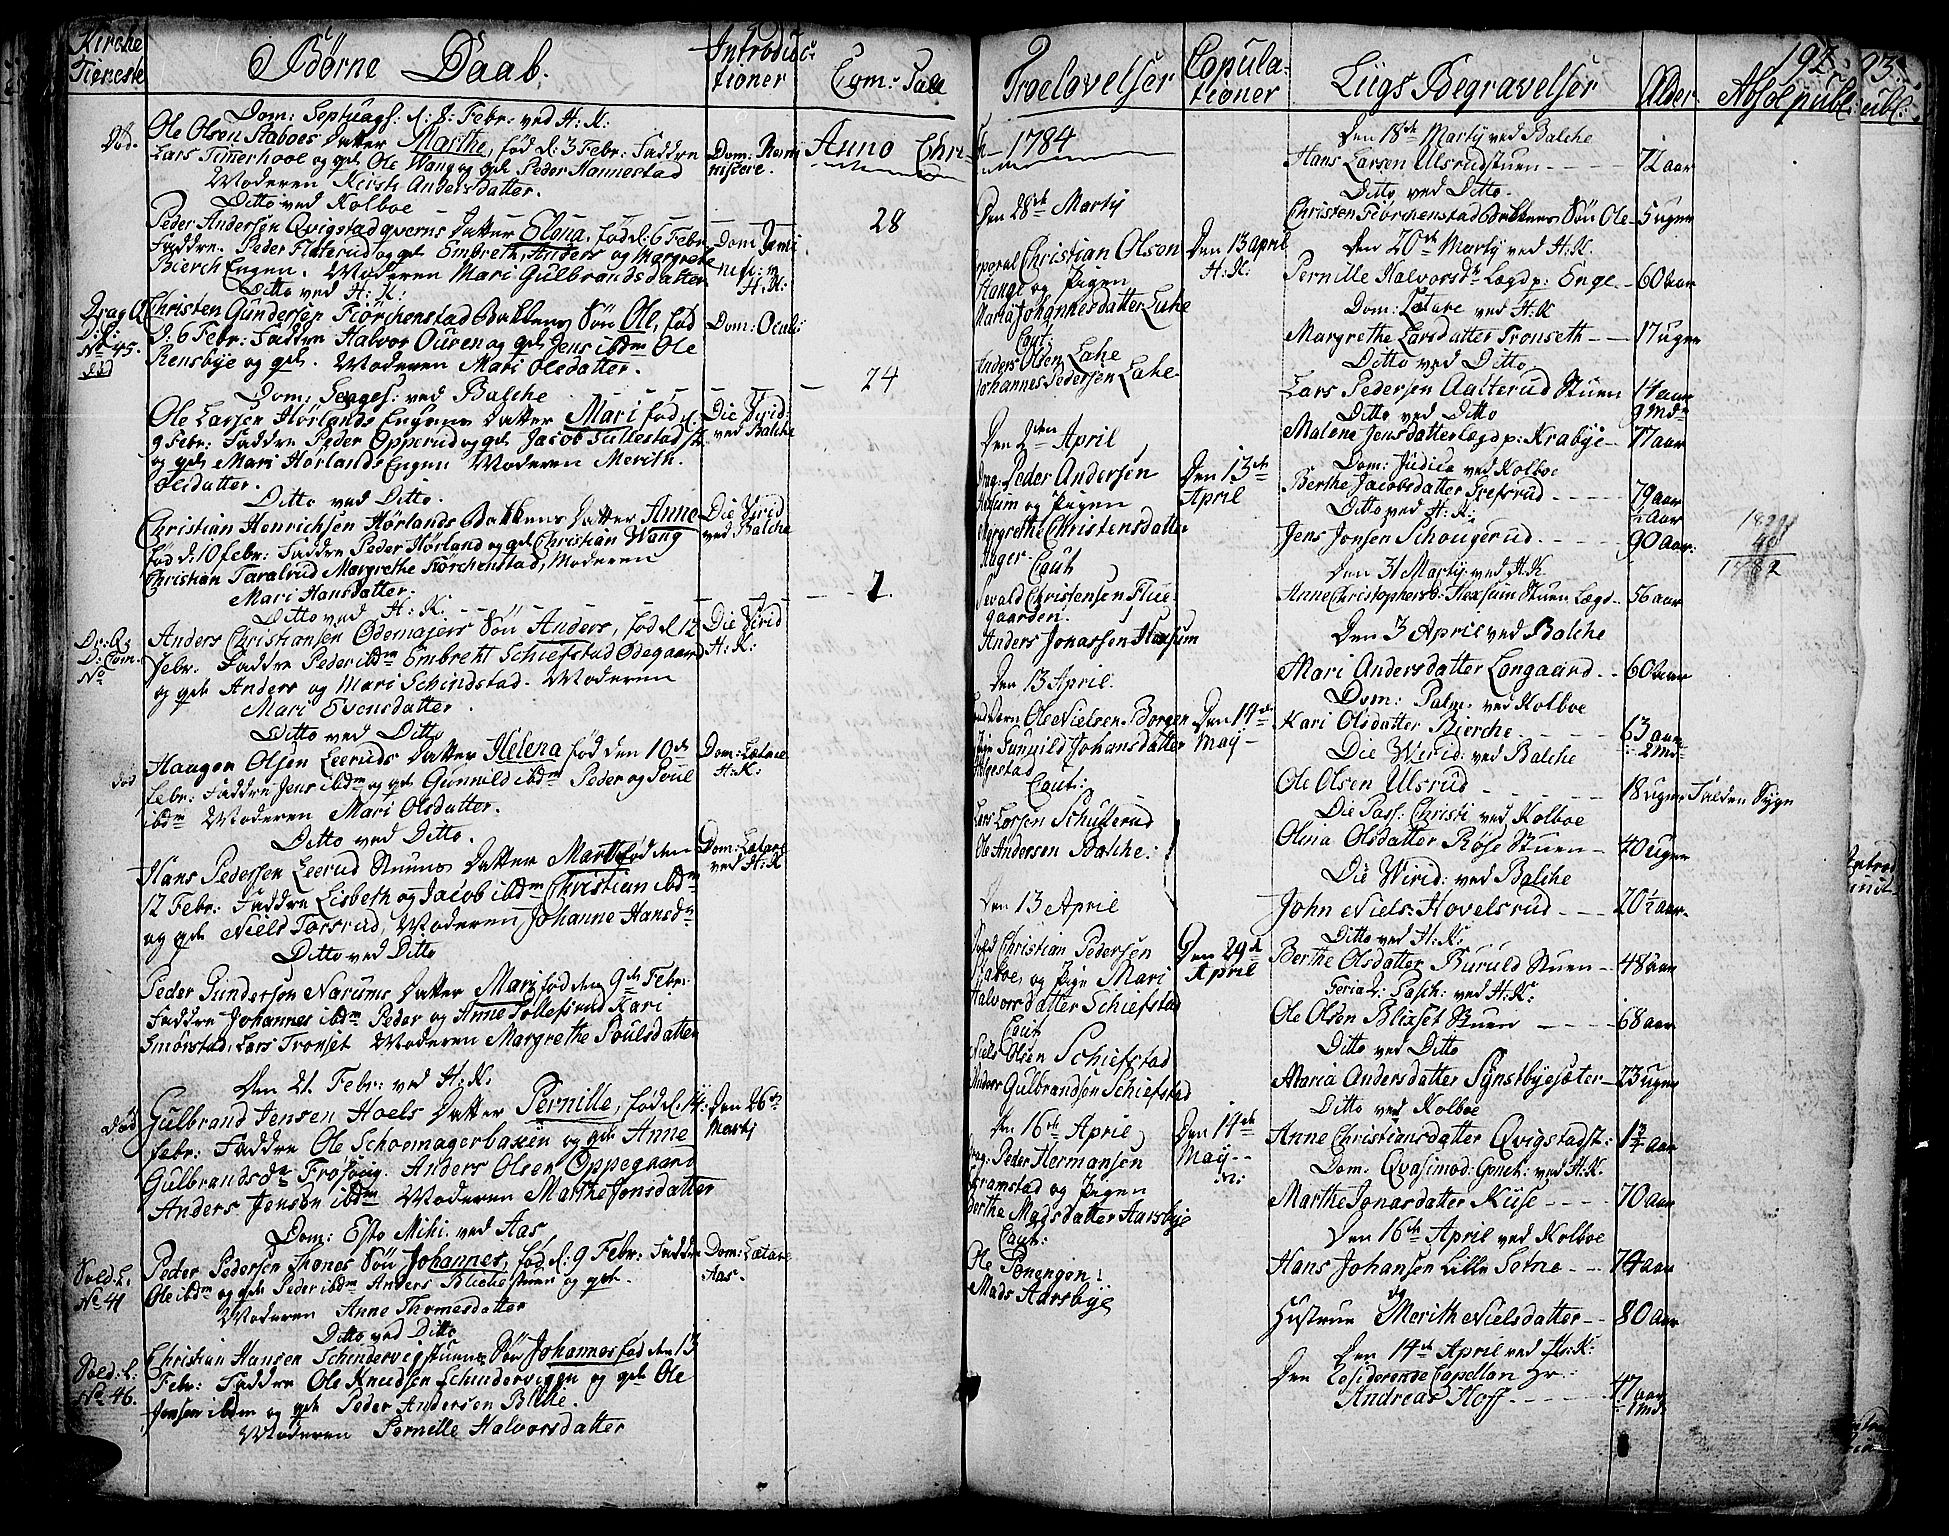 Kirche
Tieneste
Børne Daab.
Introduc:
tioner
Com: Tall
Dom: Septuages: d: 8: Febr: ved H: K:
død.
Ole Olsen Staboes Datter Marthe, fød d: 3 Febr: Faddre
Lars og gdk Ole Wang og gdk Peder Hannestad
Moderen Kirsti Andersdatter.
Dom: Remi
niscere.
Anno Chri
Ditto ved Kolboe
Peder Andersen Qvigstadqverns Datter Elena, fød d: 6 Febr
Faddre. Peder og gdk Embreth, Anders og Margrethe
Bierch Engen. Moderen Mari Gulbrandsdatter
Dom: Remi
nisc: v:
H: K:
28
Ditto ved H: K:
Drag: Q
D: C:
No 45.
død
Christen Gundersen Fiörchenstad Bakkens Søn Ole, fød
d: 6 Febr: Faddre Halvor Ouren og gdk Jens ibdm Ole
Rensbye og gdk. Moderen Mari Olsdatter.
Dom: Oculi
24
Dom: Sexages: ved Balche
Ole Larsen Hørlands Engens Datter Mari fød d:
9 Febr: Faddre Peder Opperud og gdk Jacob Tullestad
og gdk Mari Hørlands Engen Moderen Merith
Olsdatter.
Die Virid:
ved Balche
Ditto ved Ditto.
Christian Henrichsen Hørlands Bakkens Datter Anne
fød d: 10 febr: Faddre Peder Hørland og gdk Christian Wang
Christian Taralrud Margrethe Fiörchenstad, Moderen
Mari Hansdatter.
Die Virid
ved Balche
1
Ditto ved H: K:
D: Com:
No
Anders Christiansen Ødemajers Søn Anders, fød d 12
Febr. Faddre Peder ibdm Embreht Schiefstad Ødegaard
og gdk Anders og Mari Schindstad. Moderen
Mari Evensdatter.
Die Virid
H: K:
Ditto ved Ditto
død
Haagen Olsen Leeruds Datter Helena fød den 10de
Febr: Faddre Jens ibdm og gdk Gunnild ibdm Peder og Poul
ibdm Moderen Mari Olsdatter.
Dom: Lætare
H: K:
Ditto ved Ditto.
Hans Pedersen Leerud Stuens Datter Marthe fød den
12 Febr: Faddre Lisbeth og Jacob ibdm Christian ibdm
og gdk Niels Torsrud, Moderen Johanne Hansdr
Dom: Lætare
ved H: K
Ditto ved Ditto
Peder Gundersen Narums Datter Mari fød den 9de Febr:
Faddre Johannes ibdm Peder og Anne Tollefsrud Kari
Smørstad, Lars Tronset Moderen Margrethe Poulsdatter
Den 21. Febr: ved H: K:
død
Gulbrand Jensen Hoels Datter Pernille, fød d. 14:
Febr: Faddre Ole Schoemagerbaken og gdk Anne
Gulbrandsdr Frøsoeig. Anders Olsen Oppegaard
Anders Jensen ibdm Moderen Marthe Jonsdatter
Den 26de
Martj
Dom: Esto Mihi. ved Aas
Sold: L.
No 41
Peder Pedersen Thones Søn Johannes, fød d: 9 Febr: Faddre
Ole ibdm og gdk Peder ibdm Anders Blichestuen og gdk.
Moderen Anne Thomesdatter
Dom: Lætare
Aas.
Ditto ved Ditto
Sold: L:
No 46.
Christian Hansen Schindervigstuens Søn Johannes fød den 13
Febr: Faddre Ole Knudsen Schindervigen og gdk Ole
Jensen ibdm og gdk Peder Andersen Bliche.
Moderen Pernille Halvorsdatter
Troelovelser
Copula:
tioner
Liigs Begravelser
Alder
Absol publ:
192.
93.
ubl:
1784
Den 28de Martij
Christian Olsen
Stange og Pigen
Maria Johannesdatter Lahe
Caut:
Anders Olsen Lahe
Johannes Pedersen Lahe
Den 13 April
H: K:
Den 2den April
Drag: Peder Andersen
Hexum og Pigen
Margrethe Christensdatter
Hager Caut
Sevald Christensen Flue-
gaarden.
Anders Jonassen Hexum
Den 13de
April
Den 13 April.
Ole Nielsen Borgen
Pige Gunild Johansdatter
Helgestad
Caut:
Lars Larsen Schullerud
Ole Andersen Balche:
Den 19de
Maij
Den 13 April
Sold Christian Pedersen
Staboe, og Pige Mari
Halvorsdatter Schiefstad
Caut
Niels Olsen Schiefstad
Anders Gulbrandsen Schiefstad
Den 29de
April
Den 16de April
Drag: Peder Hermansen
Gramstad og Pigen
Berthe Madsdatter Aarsbye
Caut:
Ole Ponengen:
Mads Aarsbye
Den 14de
Maij
Den 18de Martij ved Balche
Hans Larsen Ulsrudstuen 72 aar
Ditto ved Ditto.
Christen Fiörchenstad Bakkens Søn Ole 5 uger
Den 20de Martij ved H: K:
Pernille Halvorsdr Lægdp: Enge 60 aar
Dom: Lætare ved H: K
Margrethe Larsdatter Tronseth 17 uger
Ditto ved Ditto
Lars Pedersen Aalterud Stuen 14 aar
9 Mdr
Ditto ved Ditto
Malene Jensdatter Lægdp: Krabye 77 aar
Dom: Judica ved Kolboe
Berthe Jacobsdatter Grefsrud 79 aar
½ aar
Ditto ved H: K:
Jens Jonsen Schougerud 90 aar
Den 31 Martij ved H: K
Anne Christophersd: Hexsum Stuen Lægd 56 aar
Den 3 April ved Balche
Mari Andersdatter Langaard 60 aar
Dom: Palm: ved Kolboe
Kari Olsdatter Bierche 63 aar
2 Md:
Die Virid: ved Balche
Ole Olsen Ulsrud 18 uger Falden Syge
Die Pass: Christi ved Kolboe
Olina Olsdatter Røse Stuen 40 uger
Die Virid: ved Balche
John Niels: Hovelsrud 20½ aar
Ditto ved H: K:
Berthe Olsdatter Buruld Stuen 48 aar
Feria 2: Pasch: ved H: K:
Ole Olsen Blixset Stuen 68 aar
Ditto ved Ditto
Maria Andersdatter Synstbyesæter 23 uger
Ditto ved Kolboe
Anne Christiansdatter Qvigstadst: 1¾ aar
Dom: Qvasimod: Genit: ved H: K.
Marthe Jonasdatter Kiise 70 aar
Den 16de April ved Kolboe
Hans Johansen Lille Setne 74 aar
Hustrue Merith Nielsdatter 80 aar
Den 14de April ved H: K:
Den Residerende Capellan Hr:
Andreas Hoff 47 aar
1 Md:
1829
40
1782